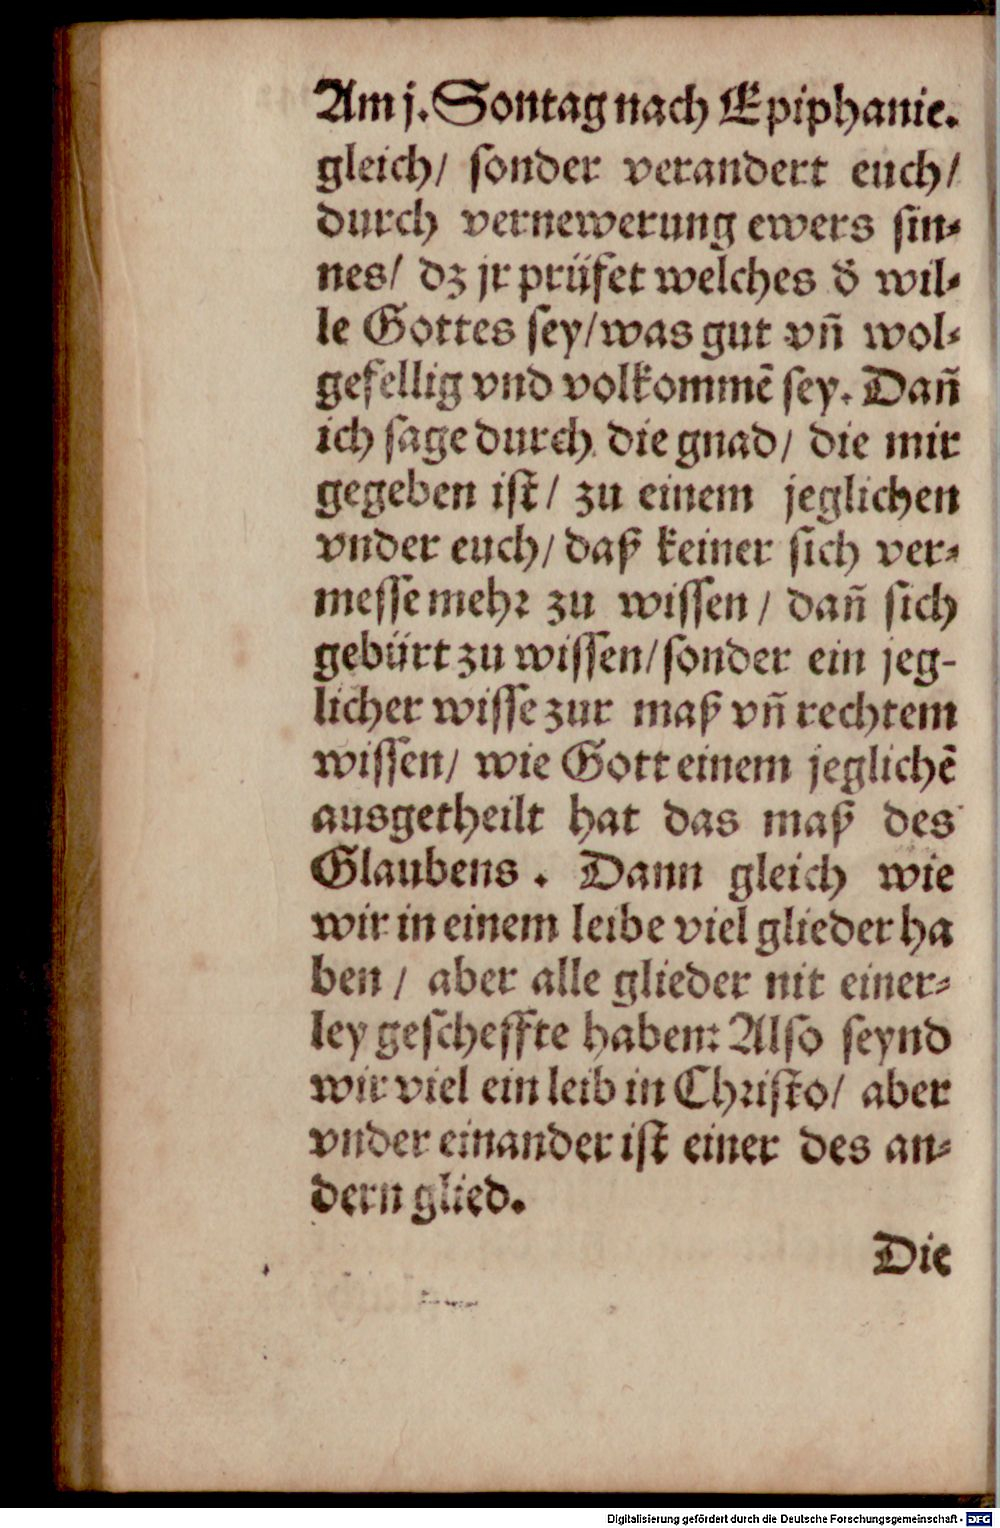 Am j. Sontag nach Epiphanie.
gleich/ sonder verandert euch/
durch vernewerung ewers sin⸗
nes/ dz jr prüfet welches d̄ wil⸗
le Gottes sey/was gut vñ wol⸗
gefellig vnd volkommē sey. Dañ
ich sage durch die gnad/ die mir
gegeben ist/ zu einem jeglichen
vnder euch/ daß keiner sich ver⸗
messe mehr zu wissen/ dañ sich
gebürt zu wissen/sonder ein jeg-
licher wisse zur maß vñ rechtem
wissen/ wie Gott einem jeglichē
ausgetheilt hat das maß des
Glaubens. Dann gleich wie
wir in einem leibe viel glieder ha
ben/ aber alle glieder nit einer⸗
ley gescheffte haben: Also seynd
wir viel ein leib in Christo/ aber
vnder einander ist einer des an⸗
dern glied.
Die
Digitalisierung gefördert durch die Deutsche Forschungsgemeinschaft - DFG